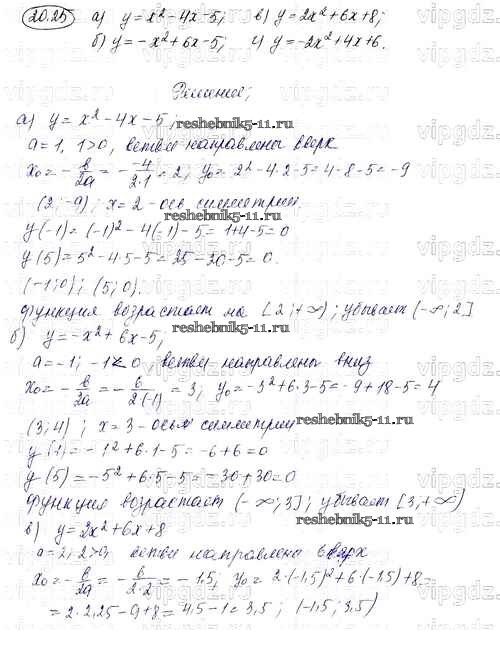 20.25 а) y = x² - 4x - 5; в) y = 2x² + 6x + 8;
б) y = -x² + 6x - 5; г) y = -2x² + 4x + 6.
Решение;
а) y = x² - 4x - 5;
a = 1, 1 > 0, ветви направлены вверх
x₀ = -b/2a = -(-4)/(2·1) = 2; y₀ = 2² - 4·2 - 5 = 4 - 8 - 5 = -9
(2; -9); x = 2 - ось симметрии.
y(-1) = (-1)² - 4(-1) - 5 = 1 + 4 - 5 = 0
y(5) = 5² - 4·5 - 5 = 25 - 20 - 5 = 0.
(-1; 0); (5; 0).
Функция возрастает на [2; +∞); убывает (-∞; 2]
б) y = -x² + 6x - 5;
a = -1; -1 < 0 ветви направлены вниз
x₀ = -b/2a = -6/(2·(-1)) = 3; y₀ = -3² + 6·3 - 5 = -9 + 18 - 5 = 4
(3; 4); x = 3 - ось симметрии
y(1) = -1² + 6·1 - 5 = -6 + 6 = 0
y(5) = -5² + 6·5 - 5 = -30 + 30 = 0
Функция возрастает (-∞; 3]; убывает [3; +∞)
в) y = 2x² + 6x + 8
a = 2, 2 > 0, ветви направлены вверх
x₀ = -b/2a = -6/(2·2) = -1,5; y₀ = 2·(-1,5)² + 6·(-1,5) + 8 =
= 2·2,25 - 9 + 8 = 4,5 - 1 = 3,5; (-1,5; 3,5)